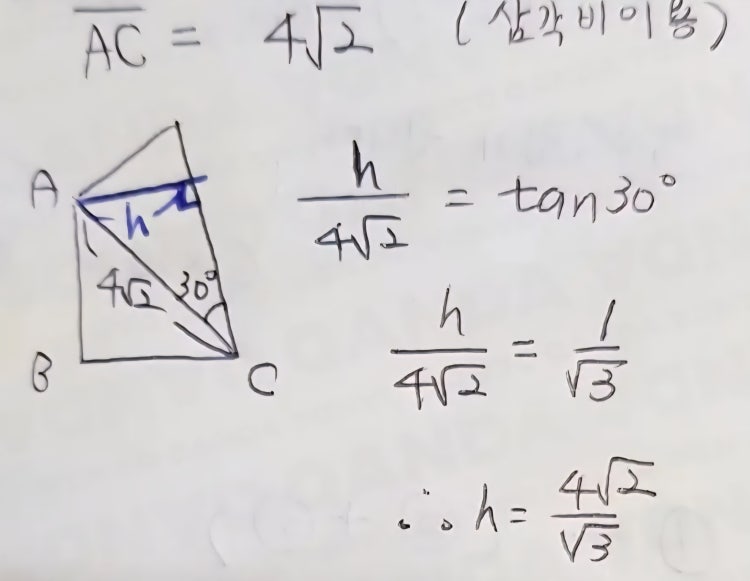 AC = 4√2 (삼각비이용)
A
h
4√2 30°
B C
h/4√2 = tan30°
h/4√2 = 1/√3
∴ h = 4√2/√3